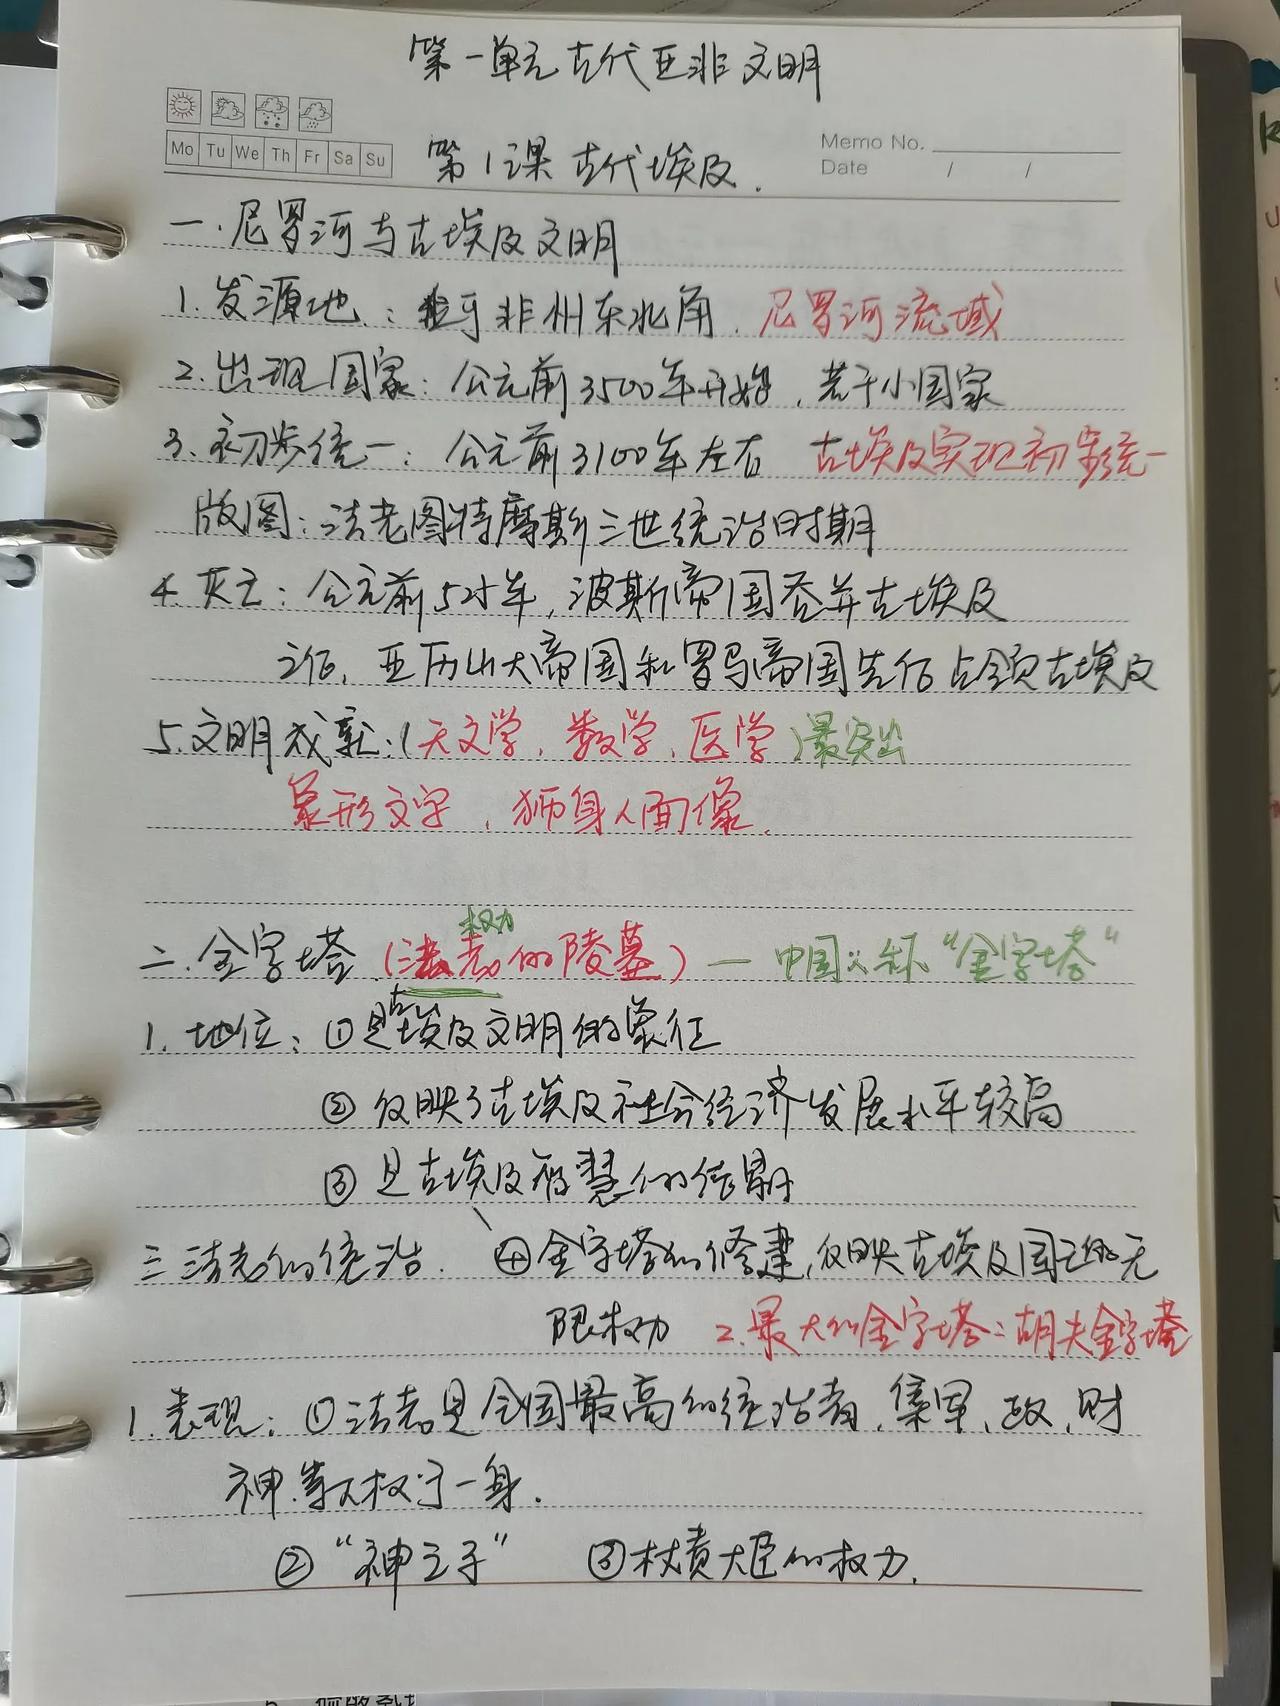 第一单元 古代亚非文明
Mo Tu We Th Fr Sa Su
Memo No.
Date / /
第1课 古代埃及.
一.尼罗河与古埃及文明
1.发源地：非州东北角.尼罗河流域
2.出现国家：公元前3500年开始，若干小国家
3.初步统一：公元前3100年左右 古埃及实现初步统一
版图：法老图特摩斯三世统治时期
4.灭亡：公元前525年，波斯帝国吞并古埃及
之后，亚历山大帝国和罗马帝国先后占领古埃及
5.文明成就：(天文学，数学，医学)最突出
象形文字，狮身人面像.
权力
二.金字塔(法老的陵墓)— 中国人称“金字塔”
1.地位：①是古埃及文明的象征
②反映了古埃及社会经济发展水平较高
③是古埃及智慧的结晶
三法老的统治. ④金字塔的修建,反映古埃及国王的无
限权力 2.最大的金字塔：胡夫金字塔
1.表现：①法老是全国最高的统治者，集军、政、财
神等大权于一身.
②“神之子” ③杖责大臣的权力.